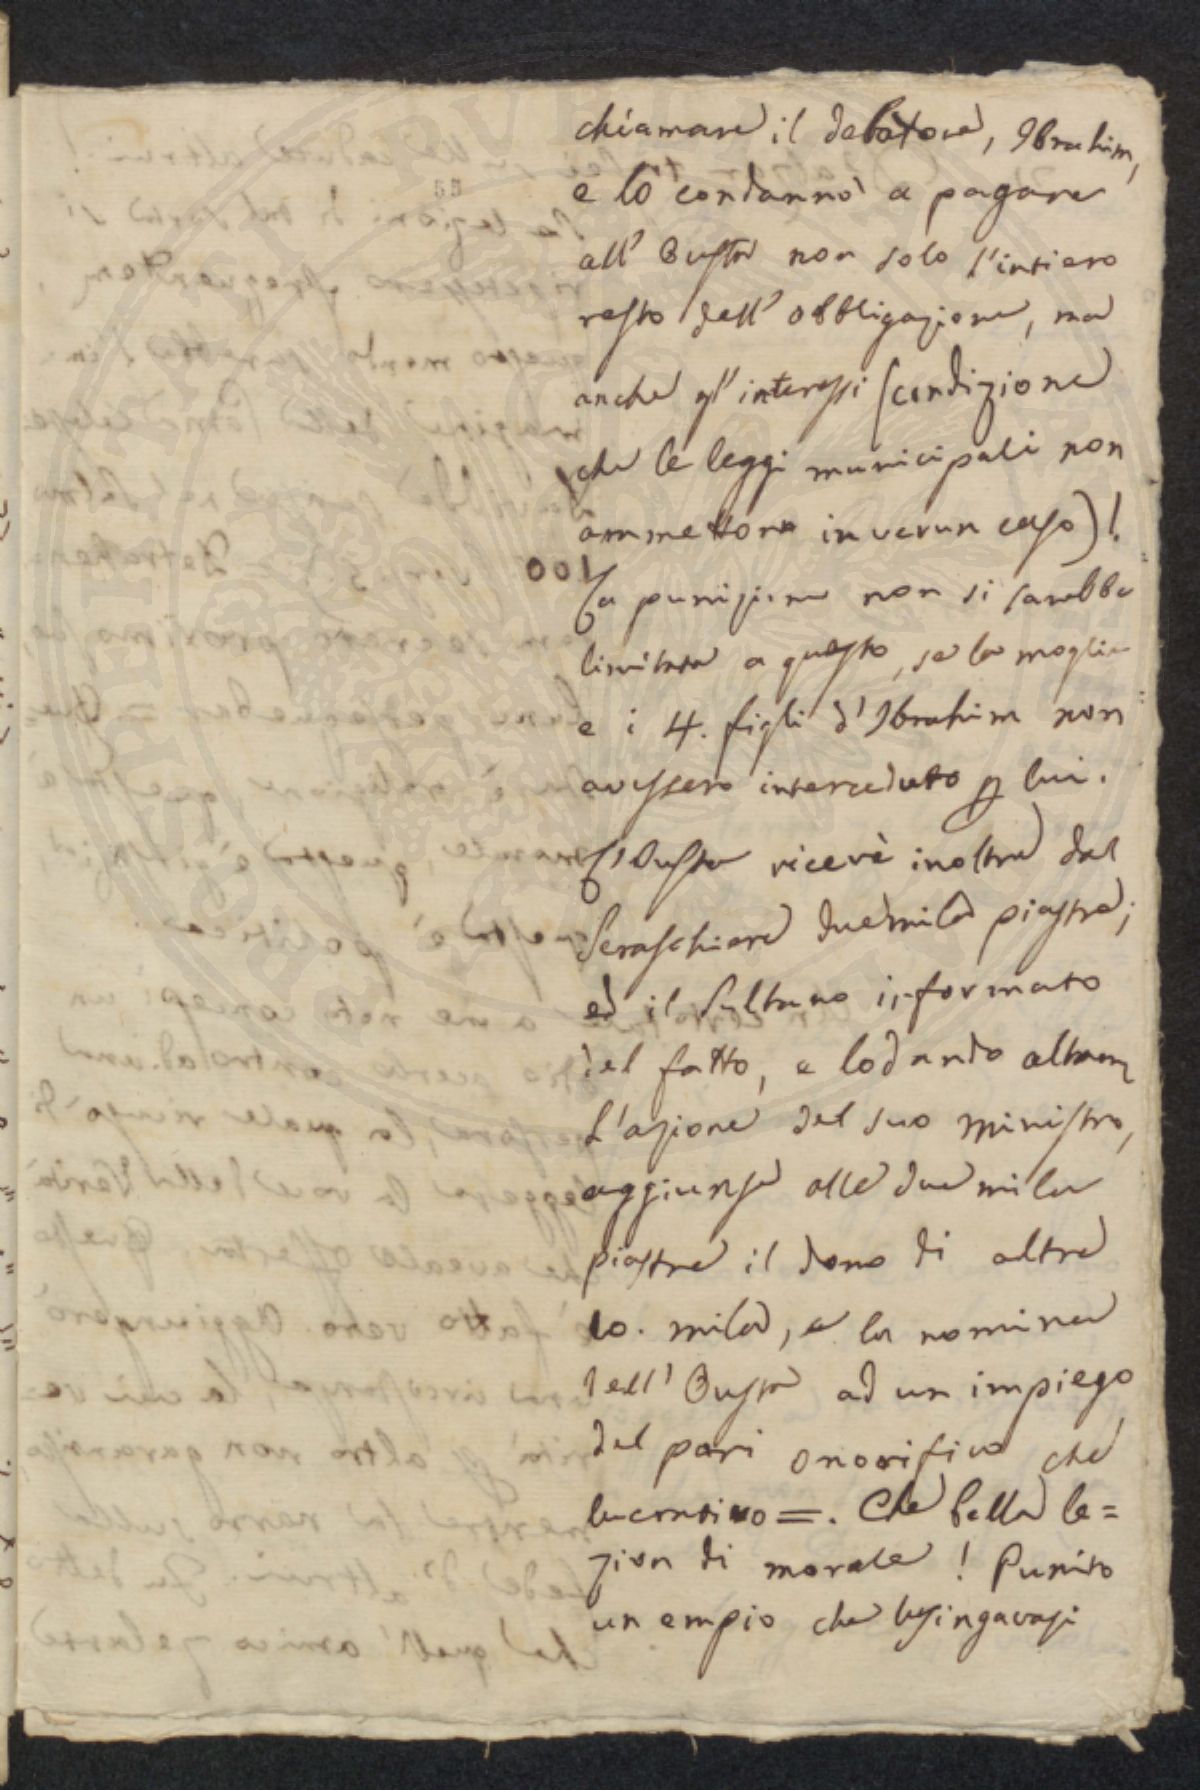 chiamare il debitore, Ibrahim,
e lo condannò a pagare
all' Busta non solo l'intiero
resto dell' obbligazione, ma
anche gl' interessi (condizione
che le leggi municipali non
ammettono in verun caso)!
100
La punizione non si sarebbe
limitata a questo, se la moglie
e i 4. figli d'Ibrahim non
avessero interceduto p lui.
Busta ricevè inoltre dal
Seraschiere duemila piastre;
ed il Sultano informato
del fatto, e lodando altam
l'azione del suo ministro,
aggiunse alle due mila
piastre il dono di altre
10. mila, e la nomina
dell' Busta ad un impiego
del pari onorifico che
lucrativo =. Che bella le=
zion di morale! Punito
un empio che lusingavasi